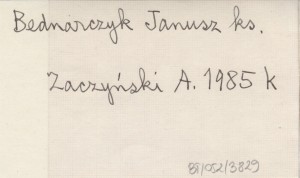 Bednarczyk Janusz ks.
Zaczyński A. 1985 k
BI/052/3829